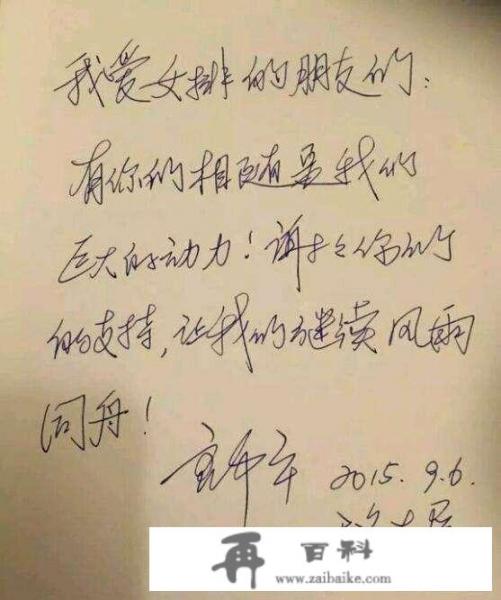 我爱女排的朋友们:
有你们相随是我们
巨大的动力!谢谢你们
的支持,让我们继续风雨
同舟!
2015.9.6.
再 百科
www.zaibaike.com